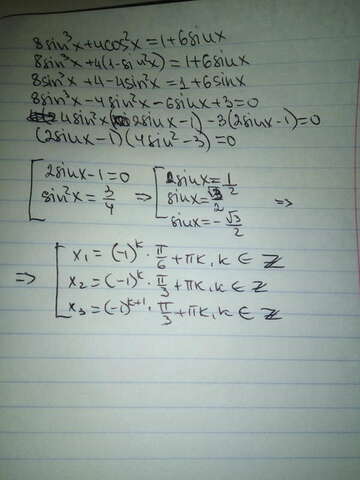 8sin³x+4cos²x=1+6sinx
8sin³x+4(1-sin²x)=1+6sinx
8sin³x+4-4sin²x=1+6sinx
8sin³x-4sin²x-6sinx+3=0
4sin²x(2sinx-1)-3(2sinx-1)=0
(2sinx-1)(4sin²-3)=0
[2sinx-1=0
sin²x=3/4 ⇒ [sinx=1/2
sinx=√3/2 ⇒
sinx=-√3/2
⇒ [x₁=(-1)ᵏ·π/6+πk, k∈Z
x₂=(-1)ᵏ·π/3+πk, k∈Z
x₃=(-1)ᵏ⁺¹·π/3+πk, k∈Z